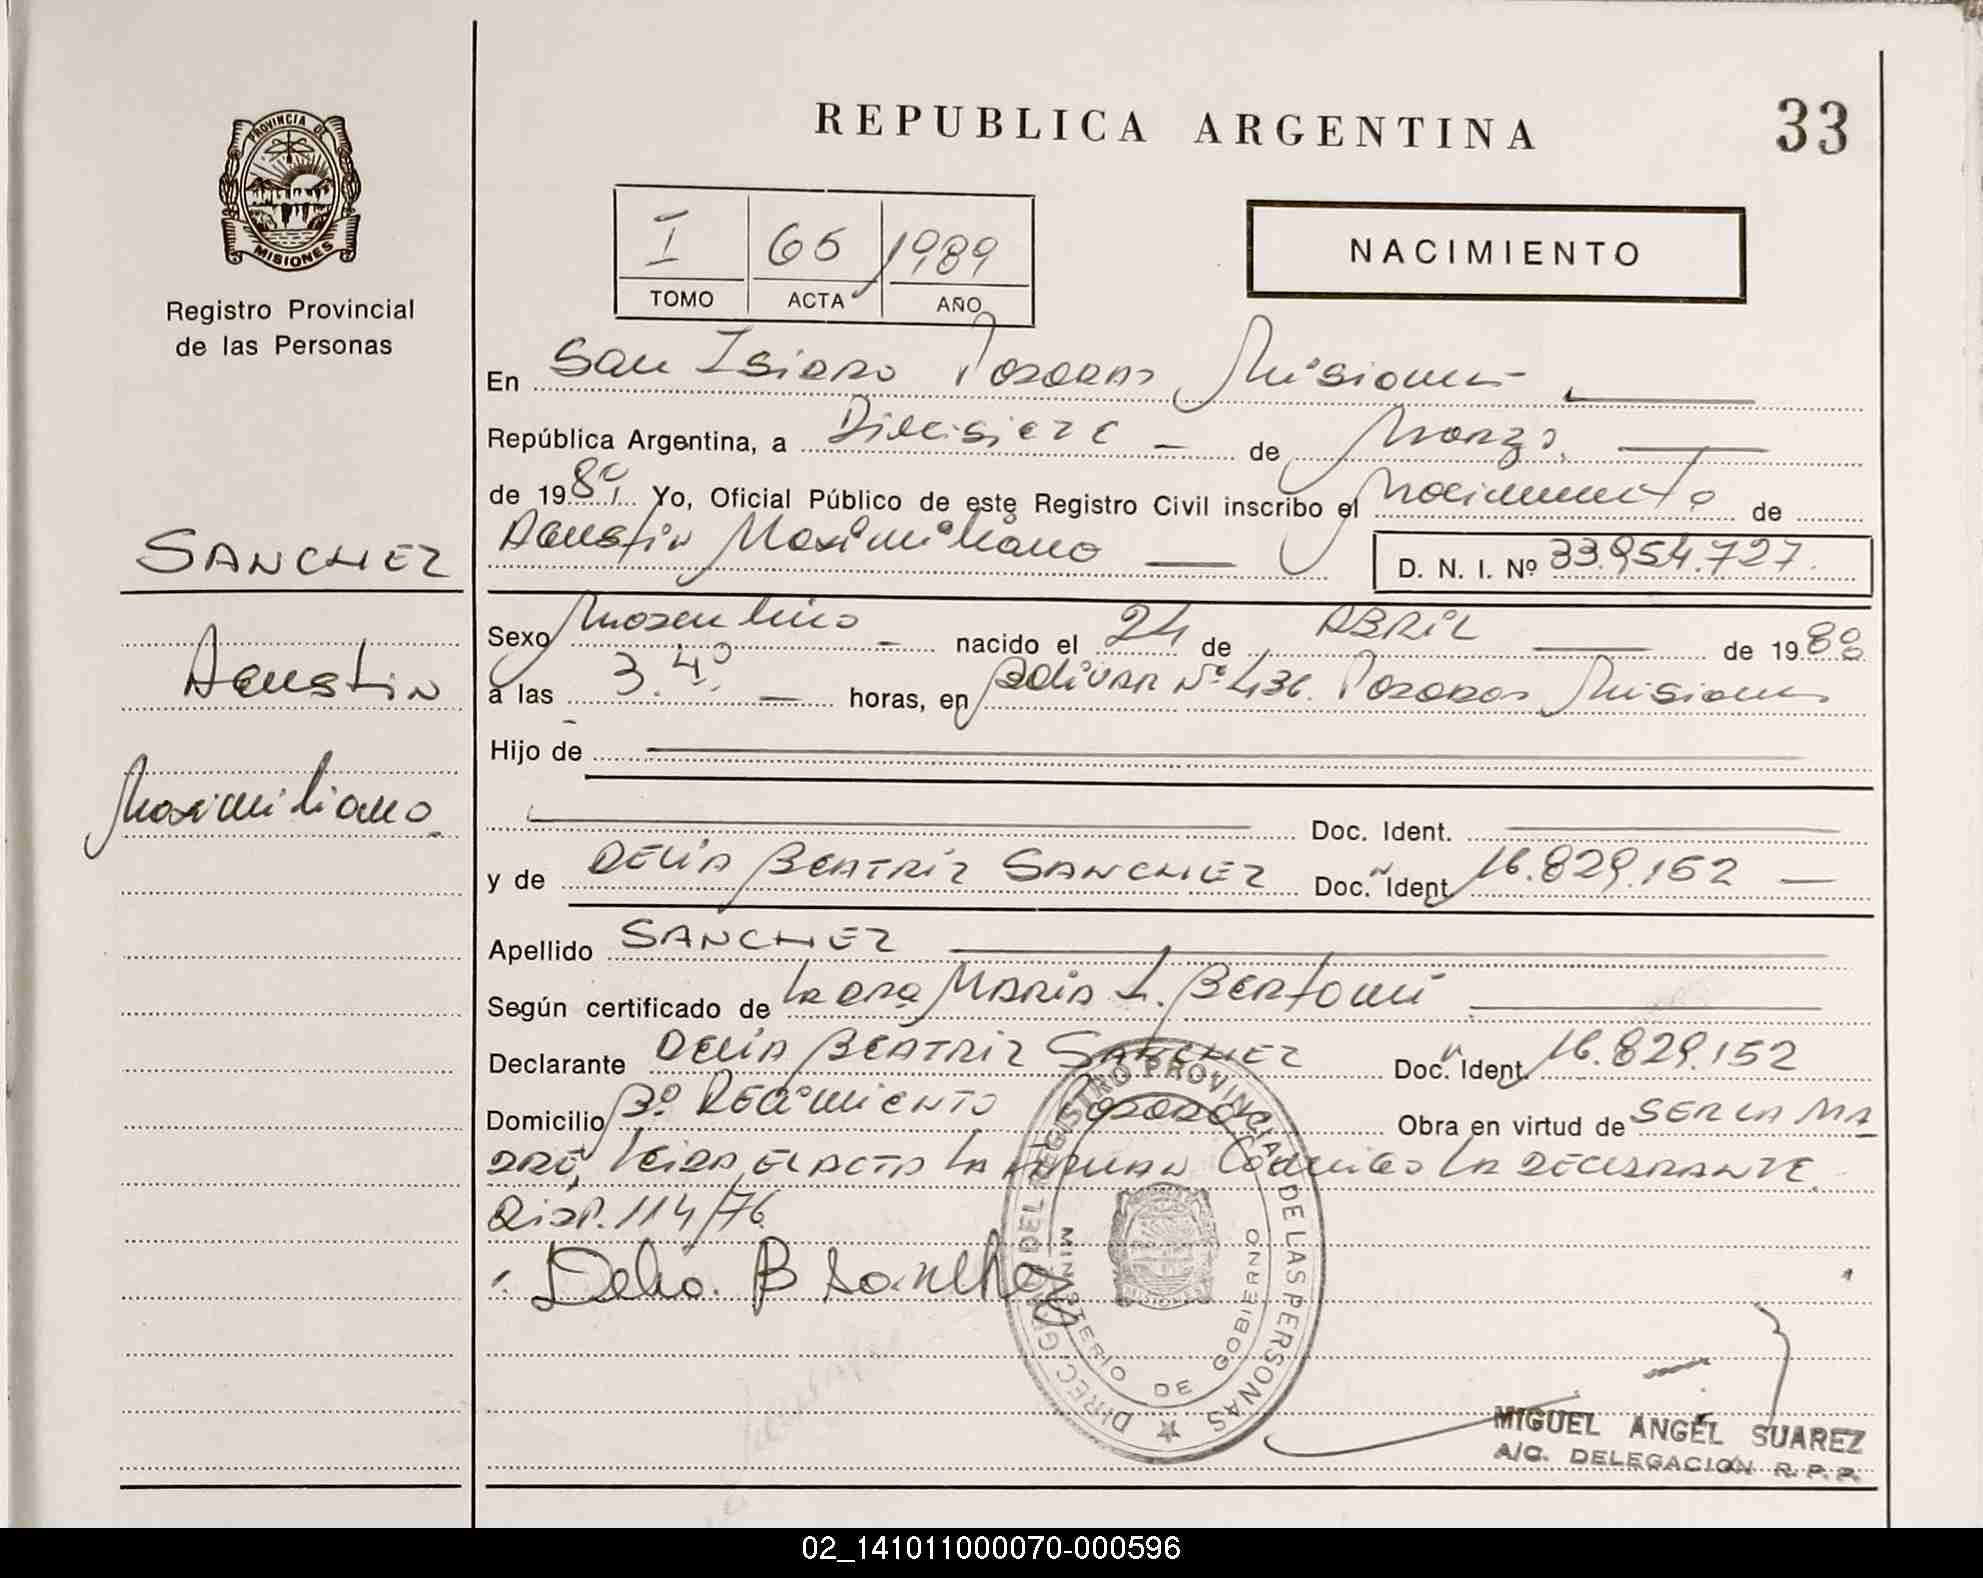 REPUBLICA ARGENTINA
33
PROVINCIA DE
MISIONES
Registro Provincial
de las Personas
I 65 1989
TOMO ACTA AÑO
NACIMIENTO
En San Isidro Posadas Misiones
República Argentina, a Diecisiete de Marzo
de 1989 Yo, Oficial Público de este Registro Civil inscribo el Nacimiento de
Agustin Maximiliano D. N. I. Nº 33.954.727.
SANCHEZ
Agustin
Maximiliano
Sexo Masculino nacido el 24 de ABRIL de 1988
a las 3.40 horas, en Bolivar Nº 436. Posadas Misiones
Hijo de
Doc. Ident.
y de DELIA BEATRIZ SANCHEZ Doc. Ident. 16.829.152
Apellido SANCHEZ
Según certificado de MARIA L. Bertoni
Declarante DELIA BEATRIZ SANCHEZ Doc. Ident. 16.829.152
Domicilio Bº REGIMIENTO Posadas Obra en virtud de SER LA MA
DRE, leida EL ACTA LA FIRMAN Conmigo LA DECLARANTE.
Disp. 114/76
Delia. B Sanchez
DIREC. GRAL. DEL REGISTRO PROVINCIAL DE LAS PERSONAS
MINISTERIO DE GOBIERNO
MISIONES
MIGUEL ANGEL SUAREZ
A/C. DELEGACION R. P. P.
02_141011000070-000596